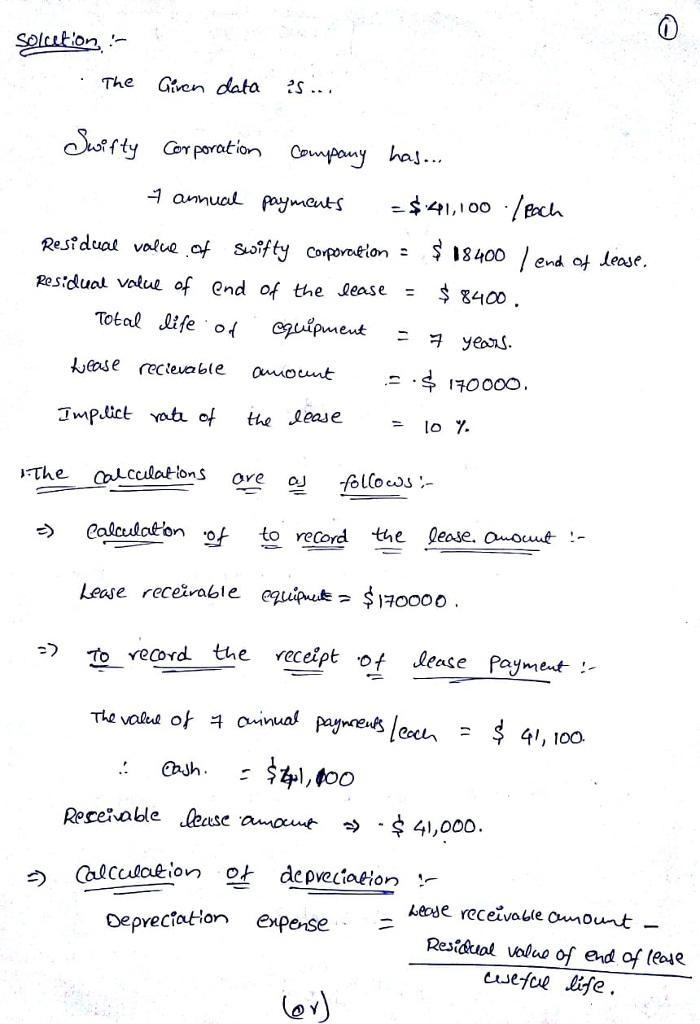 ①
Solution :-
The Given data is...
Swifty Corporation Company has...
7 annual payments = $41,100 /Each
Residual value of swifty corporation = $ 18400 / end of lease.
Residual value of end of the lease = $ 8400.
Total life of equipment = 7 years.
Lease recievable amount = $ 170000.
Implict rate of the lease = 10 %.
The calculations are as follows :-
=> Calculation of to record the lease amount :-
Lease receivable = $170000.
=> To record the receipt of lease payment :-
The value of 7 annual payments/each = $ 41,100.
∴ Cash. = $41,100
Receivable lease amount => $ 41,000.
=> Calculation of depreciation :-
Depreciation expense = Lease receivable amount -
Residual value of end of lease
useful life.
(or)